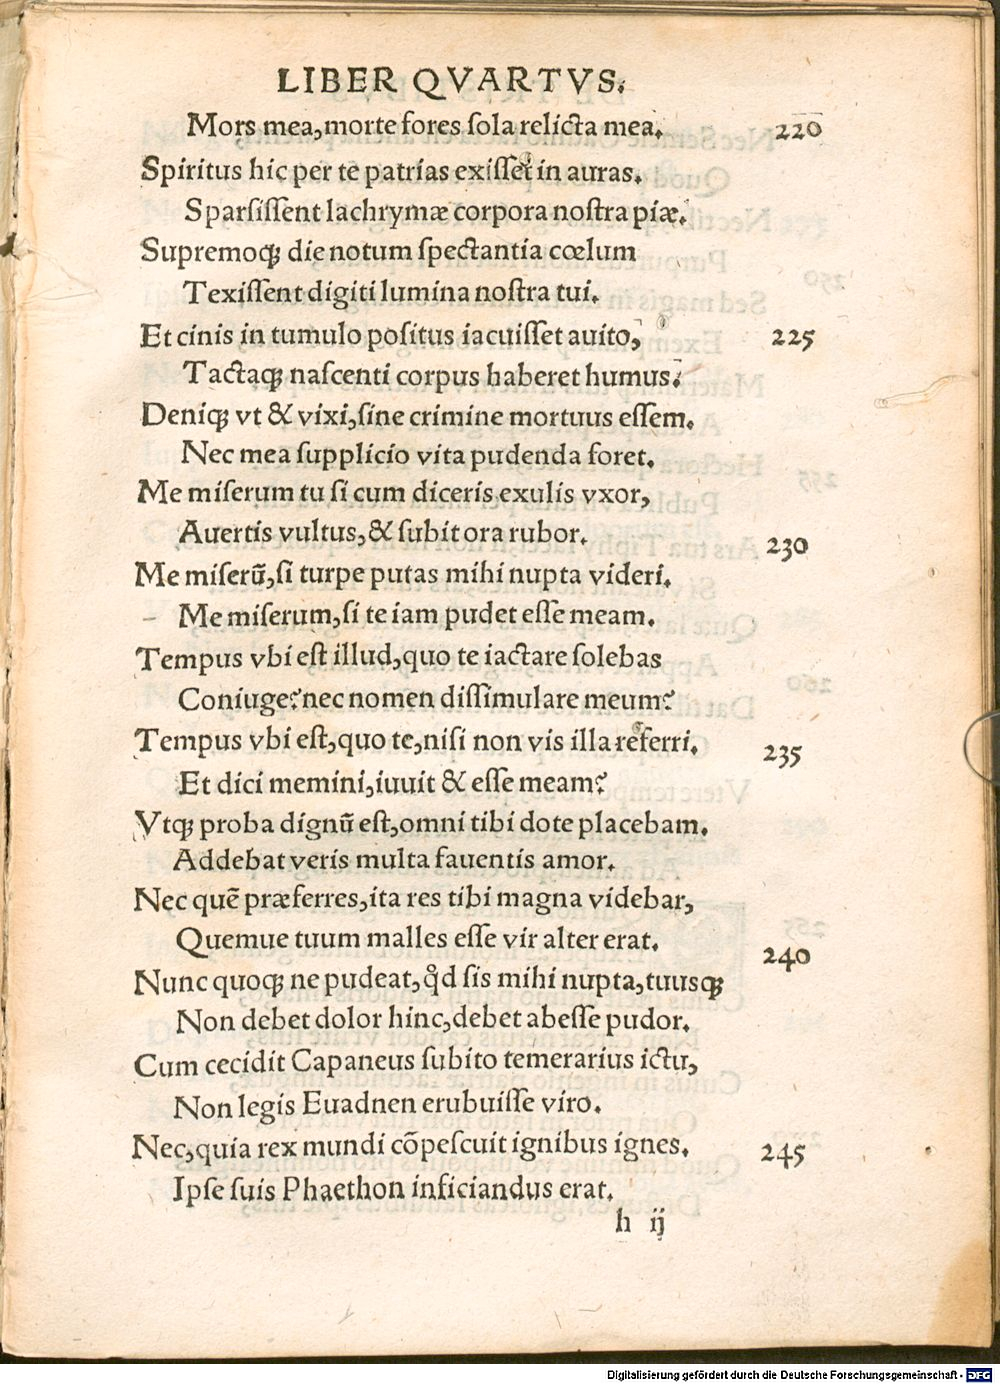 LIBER QVARTVS.
Mors mea, morte fores ſola relicta mea. 220
Spiritus hic per te patrias exiſſet in auras.
Sparſiſſent lachrymæ corpora noſtra piæ.
Supremoqꝫ die notum ſpectantia cœlum
Texiſſent digiti lumina noſtra tui.
Et cinis in tumulo poſitus iacuiſſet auito, 225
Tactaqꝫ naſcenti corpus haberet humus.
Deniqꝫ vt & vixi, ſine crimine mortuus eſſem.
Nec mea ſupplicio vita pudenda foret.
Me miſerum tu ſi cum diceris exulis vxor,
Auertis vultus, & ſubit ora rubor. 230
Me miſerū, ſi turpe putas mihi nupta videri.
Me miſerum, ſi te iam pudet eſſe meam.
Tempus vbi eſt illud, quo te iactare ſolebas
Coniuge? nec nomen diſſimulare meum?
Tempus vbi eſt, quo te, niſi non vis illa referri. 235
Et dici memini, iuuit & eſſe meam?
Vtqꝫ proba dignū eſt, omni tibi dote placebam.
Addebat veris multa fauentis amor.
Nec quē præferres, ita res tibi magna videbar,
Quemue tuum malles eſſe vir alter erat. 240
Nunc quoqꝫ ne pudeat, qd̓ ſis mihi nupta, tuusqꝫ
Non debet dolor hinc, debet abeſſe pudor.
Cum cecidit Capaneus ſubito temerarius ictu,
Non legis Euadnen erubuiſſe viro.
Nec, quia rex mundi cōpeſcuit ignibus ignes. 245
Ipſe ſuis Phaethon inficiandus erat.
h ij
Digitalisierung gefördert durch die Deutsche Forschungsgemeinschaft - DFG